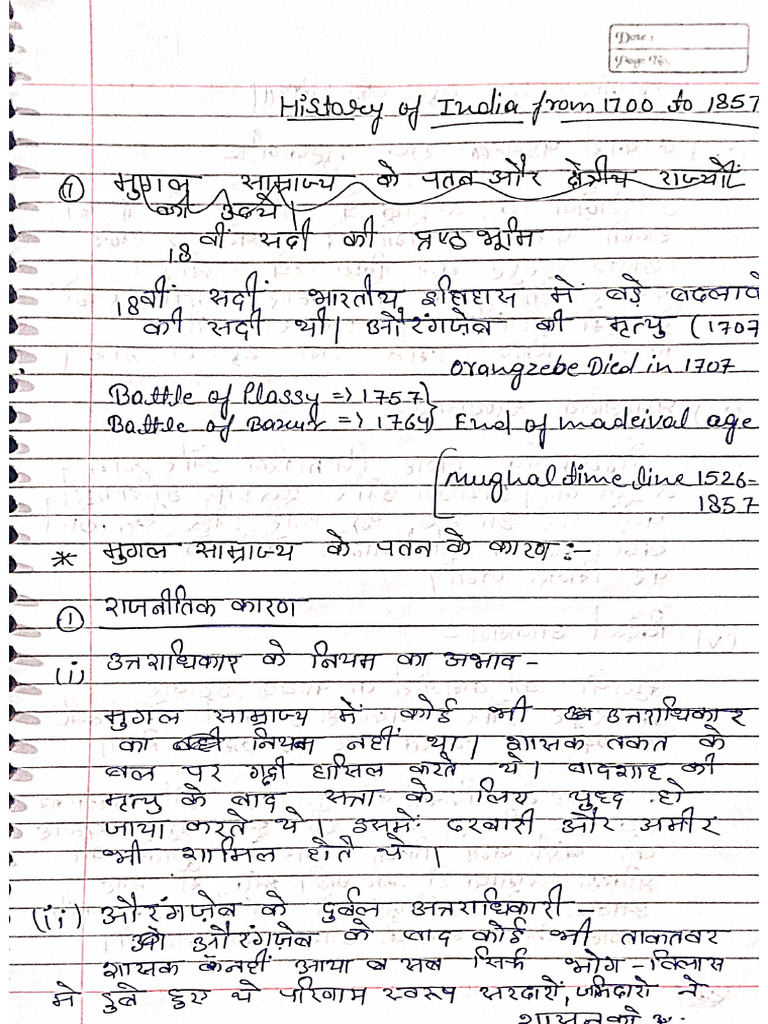 Date:
Page No.
History of India from 1700 to 1857
① मुगल साम्राज्य के पतन और क्षेत्रीय राज्यों
का उदय।
18 वीं सदी की प्रष्ठभूमि
18वीं सदीं भारतीय इतिहास में बड़े बदलाव
की सदी थी। औरंगज़ेब की मृत्यु (1707
Orangzebe Died in 1707
Battle of Plassy => 1757}
Battle of Baxur => 1764} End of madeival age
[mughal time line 1526-
1857
* मुगल साम्राज्य के पतन के कारण :-
① राजनीतिक कारण
(i) उत्तराधिकार के नियम का अभाव -
मुगल साम्राज्य में कोई भी उत्तराधिकार
का नियम नहीं था। शासक तकत के
बल पर गद्दी हासिल करते थे। बादशाह की
मृत्यु के बाद सत्ता के लिए युध्द हो
जाया करते थे। इसमें दरबारी और अमीर
भी शामिल होते थे।
(ii) औरंगज़ेब के दुर्बल उत्तराधिकारी -
औरंगज़ेब के बाद कोई भी ताकतवर
शासक नहीं आया व सब सिर्फ भोग-विलास
मे डुबे हुए थे परिणाम स्वरूप सरदारों, जमिदारो ने
शासन को